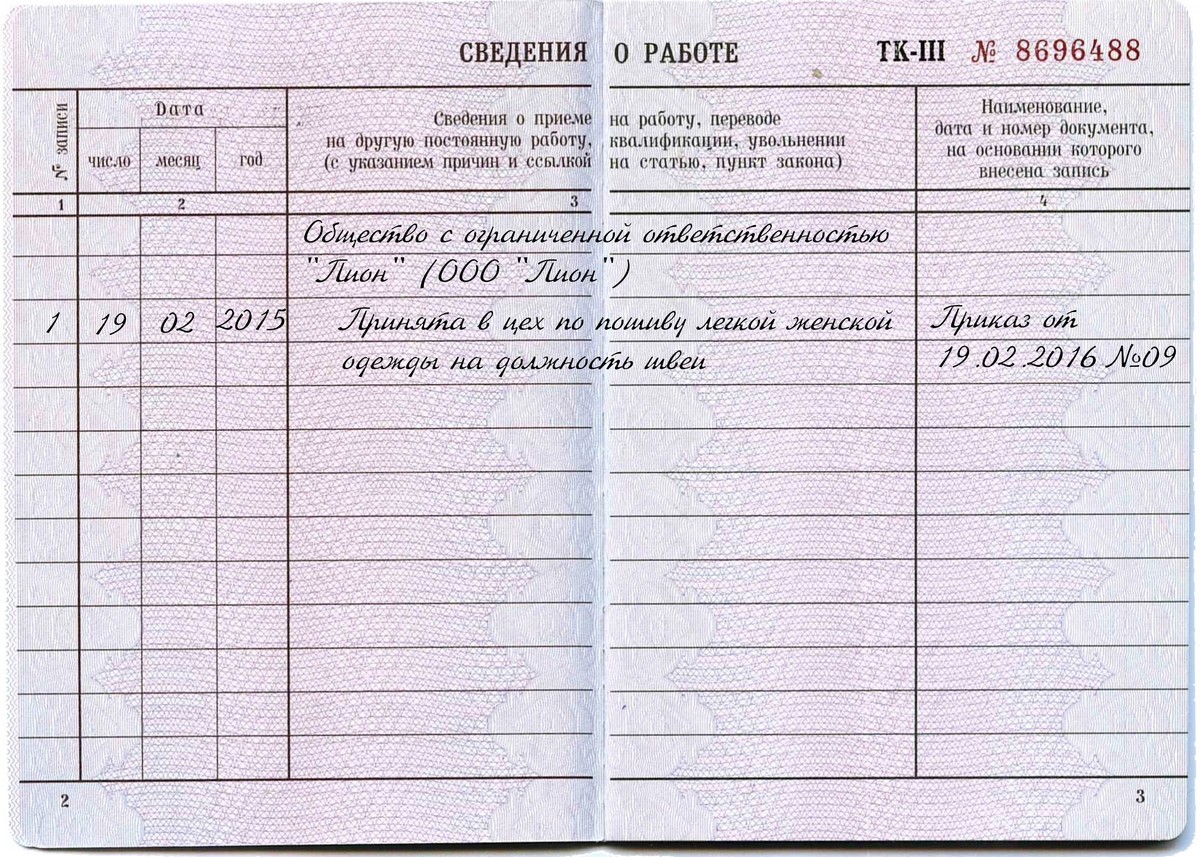 СВЕДЕНИЯ О РАБОТЕ ТК-III № 8696488
№ записи
Дата
число месяц год
Сведения о приеме на работу, переводе
на другую постоянную работу, квалификации, увольнении
(с указанием причин и ссылкой на статью, пункт закона)
Наименование,
дата и номер документа,
на основании которого
внесена запись
1 2 3 4
Общество с ограниченной ответственностью
"Пион" (ООО "Пион")
1 19 02 2015 Принята в цех по пошиву легкой женской Приказ от
одежды на должность швеи 19.02.2016 №09
2 3